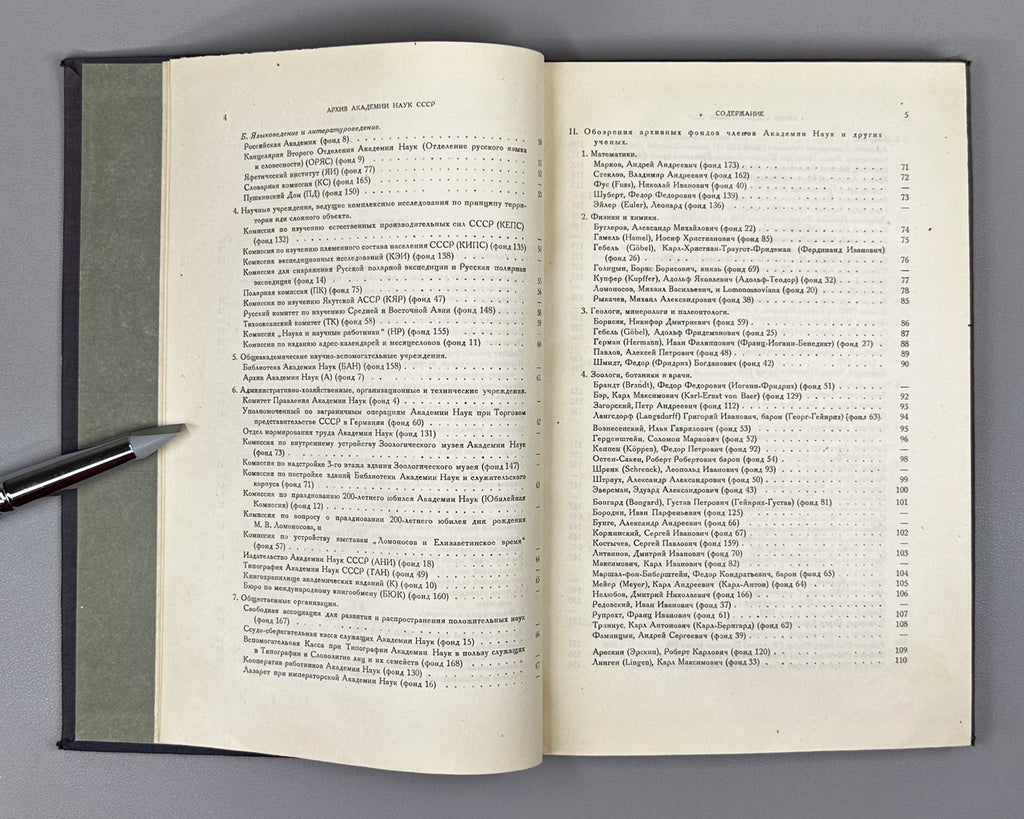 4
АРХИВ АКАДЕМИИ НАУК СССР
Б. Языковедение и литературоведение.
Российская Академия (фонд 8) 50
Канцелярия Второго Отделения Академии Наук (Отделение русского языка
и словесности) (ОРЯС) (фонд 9) 51
Яфетический институт (ЯИ) (фонд 77) 52
Словарная комиссия (КС) (фонд 165)
Пушкинский Дом (ПД) (фонд 150)
4. Научные учреждения, ведущие комплексные исследования по принципу терри-
тории или сложного объекта.
Комиссия по изучению естественных производительных сил СССР (КЕПС)
(фонд 132) —
Комиссия по изучению племенного состава населения СССР (КИПС) (фонд 135)
Комиссия экспедиционных исследований (КЭИ) (фонд 138) —
Комиссия для снаряжения Русской полярной экспедиции и Русская полярная
экспедиция (фонд 14)
Полярная комиссия (ПК) (фонд 75)
Комиссия по изучению Якутской АССР (КЯР) (фонд 47) —
Русский комитет по изучению Средней и Восточной Азии (фонд 148) 58
Тихоокеанский комитет (ТК) (фонд 58) 59
Комиссия „Наука и научные работники" (НР) (фонд 155) —
Комиссия по изданию адрес-календарей и месяцесловов (фонд 11) 60
5. Общеакадемические научно-вспомогательные учреждения.
Библиотека Академии Наук (БАН) (фонд 158) —
Архив Академии Наук (А) (фонд 7) 61
6. Административно-хозяйственные, организационные и технические учреждения.
Комитет Правления Академии Наук (фонд 4) —
Уполномоченный по заграничным операциям Академии Наук при Торговом
представительстве СССР в Германии (фонд 60) 62
Отдел нормирования труда Академии Наук (фонд 131) —
Комиссия по внутреннему устройству Зоологического музея Академии Наук
(фонд 73) —
Комиссия по надстройке 3-го этажа здания Зоологического музея (фонд 147) —
Комиссия по постройке зданий Библиотеки Академии Наук и служительского
корпуса (фонд 71) 63
Комиссия по празднованию 200-летнего юбилея Академии Наук (Юбилейная
Комиссия) (фонд 12) —
Комиссия по вопросу о праздновании 200-летнего юбилея дня рождения
М. В. Ломоносова, и
Комиссия по устройству выставки „Ломоносов и Елизаветинское время"
(фонд 57) —
Издательство Академии Наук СССР (АНИ) (фонд 18) 64
Типография Академии Наук СССР (ТАН) (фонд 49) —
Книгохранилище академических изданий (К) (фонд 10) 65
Бюро по международному книгообмену (БЮК) (фонд 160) —
7. Общественные организации.
Свободная ассоциация для развития и распространения положительных наук
(фонд 167) —
Ссудо-сберегательная касса служащих Академии Наук (фонд 15) 66
Вспомогательная Касса при Типографии Академии Наук в пользу служащих
в Типографии и Словолитне лиц и их семейств (фонд 168) —
Кооператив работников Академии Наук (фонд 130) 67
Лазарет при императорской Академии Наук (фонд 16) —
СОДЕРЖАНИЕ
5
II. Обозрения архивных фондов членов Академии Наук и других
ученых.
1. Математики.
Марков, Андрей Андреевич (фонд 173) 71
Стеклов, Владимир Андреевич (фонд 162) 72
Фус (Fuss), Николай Иванович (фонд 40) —
Шуберт, Федор Федорович (фонд 139) 73
Эйлер (Euler), Леонард (фонд 136) —
2. Физики и химики.
Бутлеров, Александр Михайлович (фонд 22) 74
Гамель (Hamel), Иосиф Христианович (фонд 85) 75
Гебель (Göbel), Карл-Христиан-Траугот-Фридеман (Фердинанд Иванович)
(фонд 26) 76
Голицын, Борис Борисович, князь (фонд 69) —
Купфер (Kupffer), Адольф Яковлевич (Адольф-Теодор) (фонд 32) 77
Ломоносов, Михаил Васильевич, и Lomonossoviana (фонд 20) 78
Рыкачев, Михаил Александрович (фонд 38) 85
3. Геологи, минерологи и палеонтологи.
Борисяк, Никифор Дмитриевич (фонд 59) 86
Гебель (Göbel), Адольф Фридемanович (фонд 25) 87
Герман (Hermann), Иван Филиппович (Франц-Иоганн-Бенедикт) (фонд 27) 88
Павлов, Алексей Петрович (фонд 48) 89
Шмидт, Федор (Фридрих) Богданович (фонд 42) 90
4. Зоологи, ботаники и врачи.
Брандт (Brandt), Федор Федорович (Иоганн-Фридрих) (фонд 51) —
Бэр, Карл Максимович (Karl-Ernst von Baer) (фонд 129) 92
Загорский, Петр Андреевич (фонд 112) 93
Лангсдорф (Langsdorff) Григорий Иванович, барон (Георг-Гейнрих) (фонд 63) 94
Вознесенский, Илья Гаврилович (фонд 53) 95
Герценштейн, Соломон Маркович (фонд 52) 96
Кеппен (Köppen), Федор Петрович (фонд 92) —
Остен-Сакен, Роберт Робертович барон (фонд 54) 98
Шренк (Schrenck), Леопольд Иванович (фонд 93) —
Штраух, Александр Александрович (фонд 50) 99
Эверсман, Эдуард Александрович (фонд 43) 100
Бонгард (Bongard), Густав Петрович (Гейнрих-Густав) (фонд 81) 101
Бородин, Иван Парфеньевич (фонд 125) —
Бунге, Александр Андреевич (фонд 66) —
Коржинский, Сергей Иванович (фонд 67) 102
Костычев, Сергей Павлович (фонд 159) —
Литвинов, Дмитрий Иванович (фонд 70) 103
Максимович, Карл Иванович (фонд 82) —
Маршал-фон-Биберштейн, Федор Кондратьевич, барон (фонд 65) 104
Мейер (Meyer), Карл Андреевич (Карл-Антон) (фонд 64) 105
Нелюбов, Дмитрий Николаевич (фонд 166) 106
Редовский, Иван Иванович (фонд 37) —
Рупрехт, Франц Иванович (фонд 61) 107
Триниус, Карл Антонович (Карл-Бернгард) (фонд 62) 108
Фаминцын, Андрей Сергеевич (фонд 39) —
Арескин (Эрскин), Роберт Карлович (фонд 120) 109
Линген (Lingen), Карл Максимович (фонд 33) 110